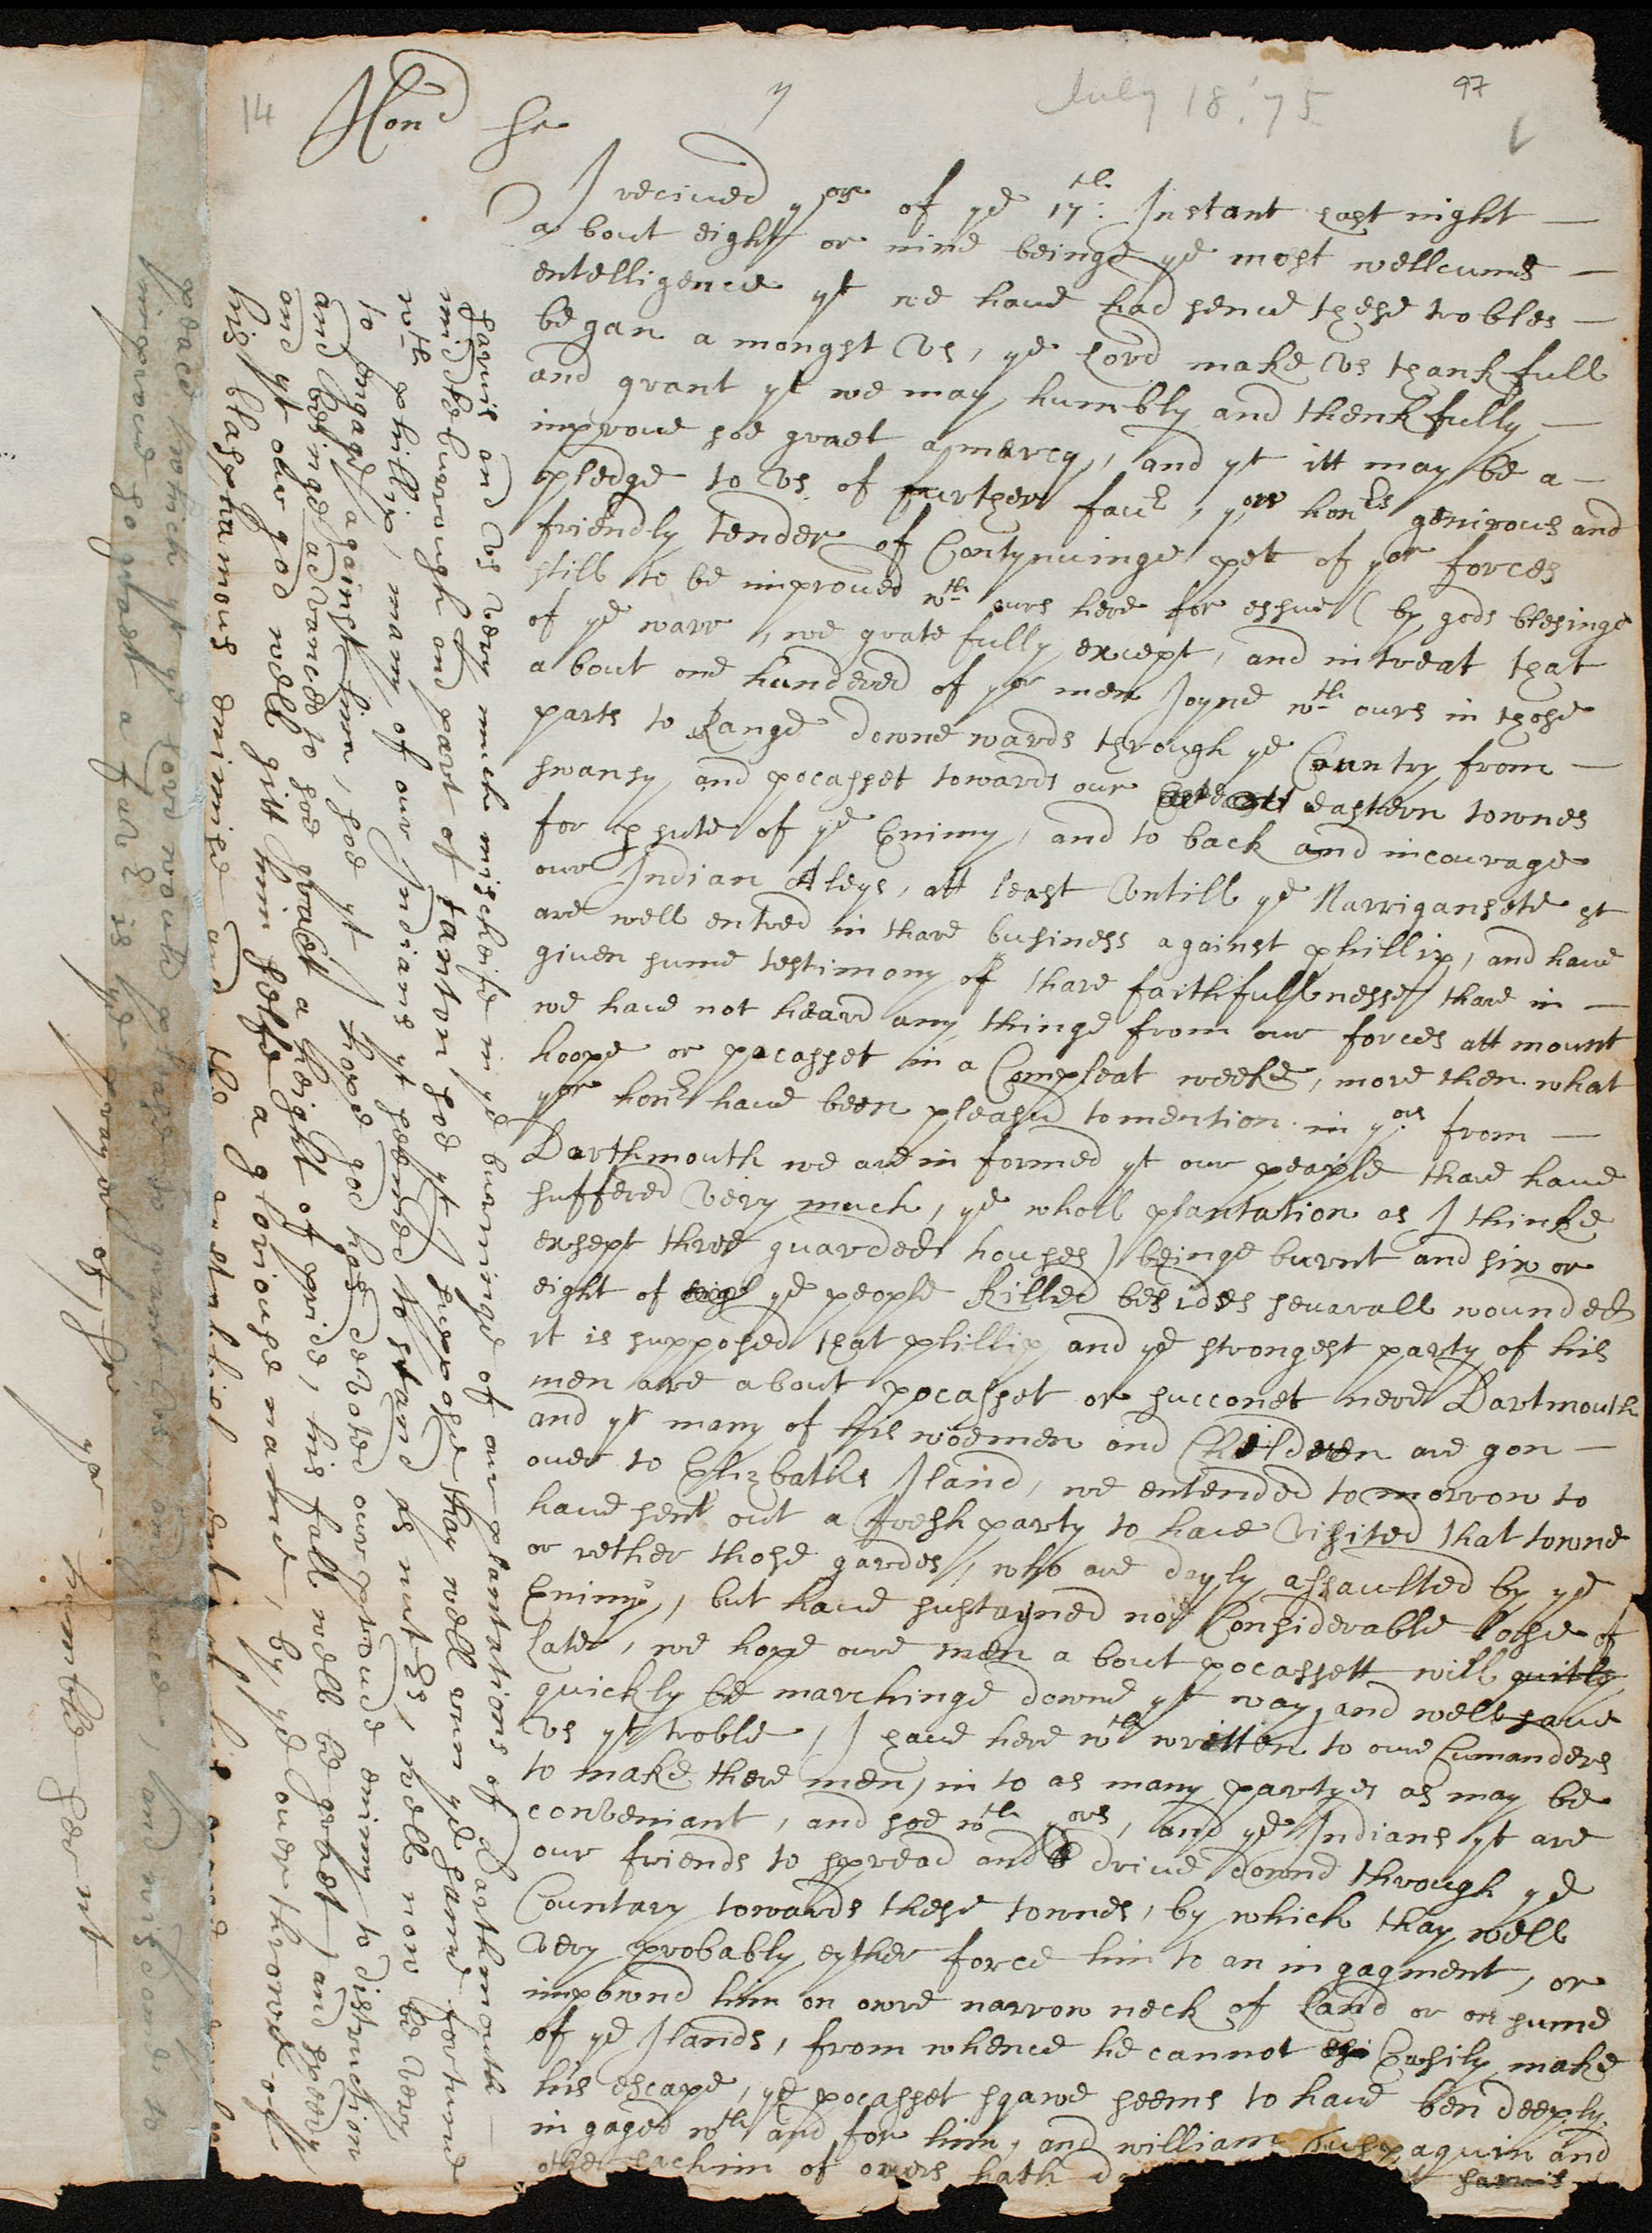 14
July 18. '75
97
7
Hond Sr
I recived yors of ye 17th: Instant Last night —
a bout eight or nine beinge ye most wellcume —
entelligence yt we haue had sence these trobles —
began a mongst Vs, ye Lord make Vs thankfull
and grant yt we may humbly and thenkfully —
improue soe graet a marcy, and yt itt may be a —
pledge to Vs of further fauor, yor honrs genirous and
friendly tender of Contynuinge pet of yor forces
still to be improued wth ours here for essue (by gods blesinge
of ye warr, we gratefully except, and intreat that
a bout one hundered of yor men Joyne wth ours in those
parts to Range downe wards through ye Country from —
swansy and pocasset towards our eastern townes
for psute of ye Enimy, and to back and incourage
our Indian Aleys, att least Vntill ye Narrigansete st
are well entred in thare business against phillip, and haue
given sume testimony of thare faithfullnesse thare in —
we haue not heard any thinge from our forces att mount
hoope or pocasset in a Compleat weeke, more then what
yor honr haue been pleasd to mention in yors from —
Darthmouth we are in formed yt our peaple thare haue
suffered Very much, ye wholl plantation as I thinke
exsept three guarded houses) beinge burnt and six or
eight of ye people Killed besides seuarall wounded
it is supposed that phillip and ye strongest party of his
men are about pocasset or succonet nere Dartmouth
and yt many of his woemen and Chilldren are gon —
ouer to Elizbaths Iland, we entended to morrow to
haue sent out a fresh party to haue Visited that towne
or rether those gardes, who are dayly assaulted by ye
Enimy, but haue sustayned noe Considerable losse of
late, we hope oure men a bout pocassett will quitly
quickly be marchinge downe yt way, and well saue
Vs yt troble, I haue here wth written to oure Cumanders
to make there men, in to as many partyes as may be
conveniant, and soe wth yors, and ye Indians yt are
our friends to spread and driue downe through ye
Countary towards these townes, by which thay well
Very probably eyther force him to an in gagment, or
impownd him on owre narrow neck of Land or on sume
of ye Ilands, from whence he cannot Easily make
his escape, ye pocasset sqawe seems to haue ben deeply
in gaged wth and for him, and william Tuspaquin and
other sachim of ouers hath
sarvis
sarvis and Vs Very much mischeife in ye burninge of our plantations of Darthmouth —
middleburrough and part of Tanton soe yt I suppose thay well run ye same fortune
wth phillip, many of our Indians yt seemed to stand as nutrs, well now be Very
to Ingage against him, soe yt I hope god has devoted our proud enimy to distruction
and beinge advanced to soe graet a height of pride, his fall well be graet and speedy
and yt our god well gitt him selfe a gloriouse name, by ye ouer throwe of
his blasphamous Enimise and the
peace which yt ye Lord would please to grant Vs, and and wisdome to
improue so great a fauor is ye
prayer of Sr yor
humble Servnt